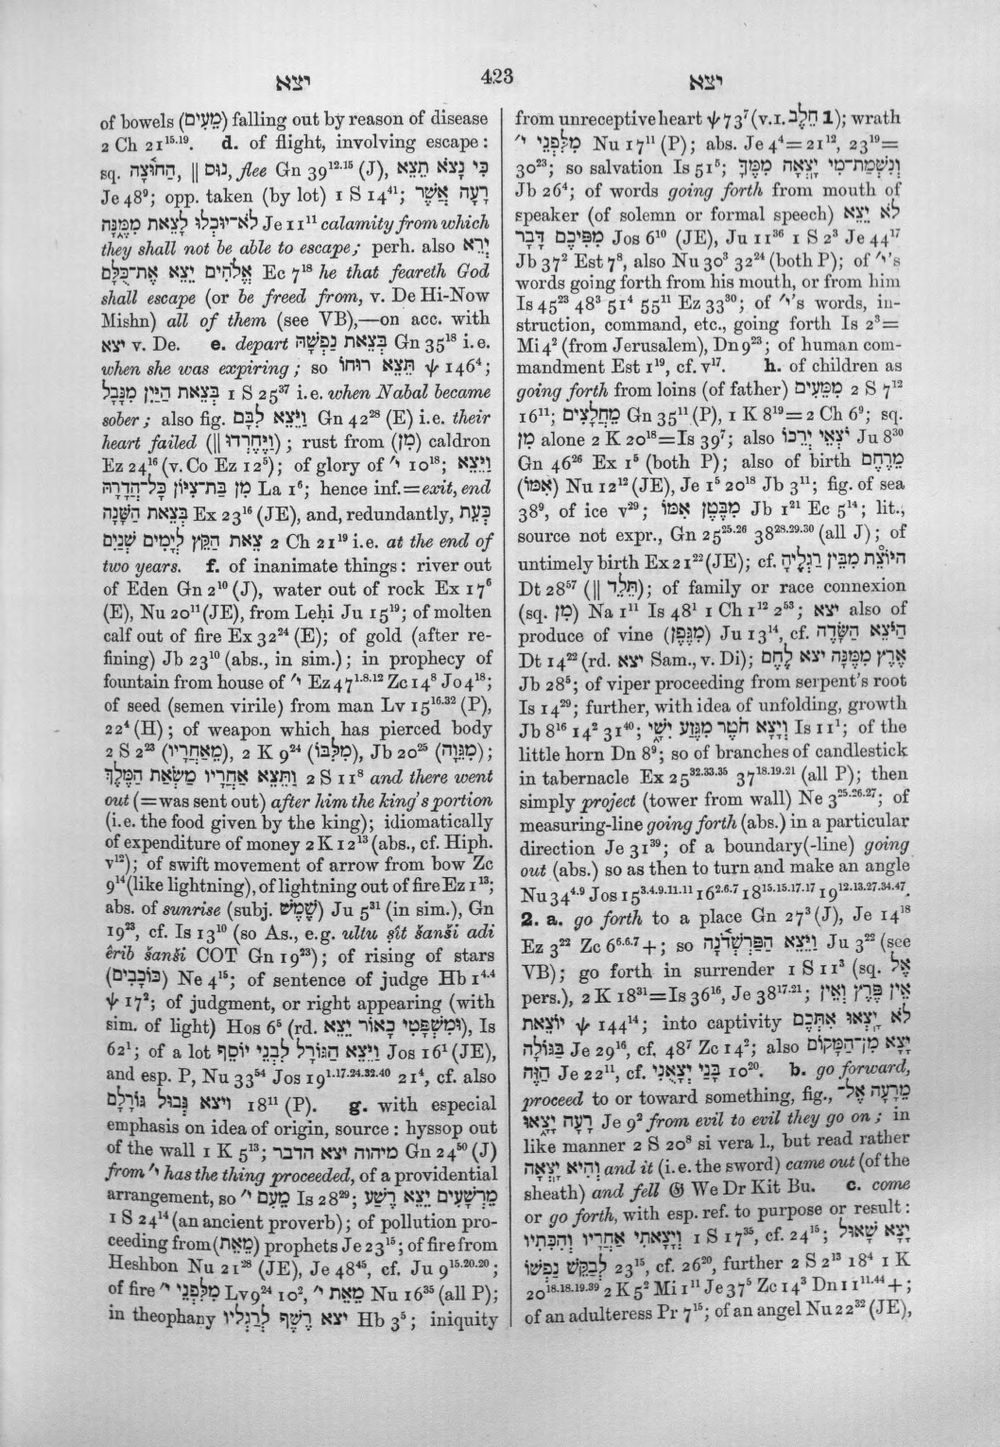 יצא
423
יצא
of bowels (מֵעַיִם) falling out by reason of disease
2 Ch 21¹⁵·¹⁹. d. of flight, involving escape :
sq. הַחוּצָה, ‖ נוּס, flee Gn 39¹²·¹⁵ (J), כִּי נָצֹא תֵצֵא
Je 48⁹; opp. taken (by lot) 1 S 14⁴¹; רָעָה אֲשֶׁר
לֹא־יוּכְלוּ לָצֵאת מִמֶּנָּה Je 11¹¹ calamity from which
they shall not be able to escape; perh. also יְרֵא
אֱלֹהִים יֵצֵא אֶת־כֻּלָּם Ec 7¹⁸ he that feareth God
shall escape (or be freed from, v. De Hi-Now
Mishn) all of them (see VB),—on acc. with
יצא v. De. e. depart בְּצֵאת נַפְשָׁהּ Gn 35¹⁸ i.e.
when she was expiring; so תֵּצֵא רוּחוֹ ψ 146⁴;
בְּצֵאת הַיַּיִן מִנָּבָל 1 S 25³⁷ i.e. when Nabal became
sober; also fig. וַיֵּצֵא לִבָּם Gn 42²⁸ (E) i.e. their
heart failed (‖ וַיֶּחֶרְדוּ); rust from (מִן) caldron
Ez 24¹⁶ (v. Co Ez 12⁵); of glory of י׳ 10¹⁸; וַיֵּצֵא
מִן בַּת־צִיּוֹן כָּל־הֲדָרָהּ La 1⁶; hence inf.=exit, end
בְּצֵאת הַשָּׁנָה Ex 23¹⁶ (JE), and, redundantly, כְּעֵת
צֵאת הַקֵּץ לְיָמִים שְׁנַיִם 2 Ch 21¹⁹ i.e. at the end of
two years. f. of inanimate things: river out
of Eden Gn 2¹⁰ (J), water out of rock Ex 17⁶
(E), Nu 20¹¹ (JE), from Leḥi Ju 15¹⁹; of molten
calf out of fire Ex 32²⁴ (E); of gold (after re-
fining) Jb 23¹⁰ (abs., in sim.); in prophecy of
fountain from house of י׳ Ez 47¹·⁸·¹² Zc 14⁸ Jo 4¹⁸;
of seed (semen virile) from man Lv 15¹⁶·³² (P),
22⁴ (H); of weapon which has pierced body
2 S 2²³ (מֵאַחֲרָיו), 2 K 9²⁴ (מִלִּבּוֹ), Jb 20²⁵ (מִגֵּוָה);
וַתֵּצֵא אַחֲרָיו מַשְׂאַת הַמֶּלֶךְ 2 S 11⁸ and there went
out (=was sent out) after him the king's portion
(i.e. the food given by the king); idiomatically
of expenditure of money 2 K 12¹³ (abs., cf. Hiph.
v¹²); of swift movement of arrow from bow Zc
9¹⁴ (like lightning), of lightning out of fire Ez 1¹³;
abs. of sunrise (subj. שֶׁמֶשׁ) Ju 5³¹ (in sim.), Gn
19²³, cf. Is 13¹⁰ (so As., e.g. ultu ṣît šanši adi
êrib šanši COT Gn 19²³); of rising of stars
(כּוֹכָבִים) Ne 4¹⁵; of sentence of judge Hb 1⁴·⁴
ψ 17²; of judgment, or right appearing (with
sim. of light) Hos 6⁵ (rd. וּמִשְׁפָּטִי כָאוֹר יֵצֵא), Is
62¹; of a lot וַיֵּצֵא הַגּוֹרָל לִבְנֵי יוֹסֵף Jos 16¹ (JE),
and esp. P, Nu 33⁵⁴ Jos 19¹·¹⁷·²⁴·³²·⁴⁰ 21⁴, cf. also
ויצא גְּבוּל גּוֹרָלָם 18¹¹ (P). g. with especial
emphasis on idea of origin, source: hyssop out
of the wall 1 K 5¹³; מיהוה יצא הדבר Gn 24⁵⁰ (J)
from י׳ has the thing proceeded, of a providential
arrangement, so מֵעִם י׳ Is 28²⁹; מֵרְשָׁעִים יֵצֵא רֶשַׁע
1 S 24¹⁴ (an ancient proverb); of pollution pro-
ceeding from (מֵאֵת) prophets Je 23¹⁵; of fire from
Heshbon Nu 21²⁸ (JE), Je 48⁴⁵, cf. Ju 9¹⁵·²⁰·²⁰;
of fire מִלִּפְנֵי י׳ Lv 9²⁴ 10², מֵאֵת י׳ Nu 16³⁵ (all P);
in theophany יצא רֶשֶׁף לְרַגְלָיו Hb 3⁵; iniquity
from unreceptive heart ψ 73⁷ (v. I. חֵלֶב 1); wrath
מִלִּפְנֵי י׳ Nu 17¹¹ (P); abs. Je 4⁴=21¹², 23¹⁹=
30²³; so salvation Is 51⁵; וְנִשְׁמַת־מִי יָצְאָה מִמֶּךָּ
Jb 26⁴; of words going forth from mouth of
speaker (of solemn or formal speech) לֹא יֵצֵא
מִפִּיכֶם דָּבָר Jos 6¹⁰ (JE), Ju 11³⁶ 1 S 2³ Je 44¹⁷
Jb 37² Est 7⁸, also Nu 30³ 32²⁴ (both P); of י׳'s
words going forth from his mouth, or from him
Is 45²³ 48³ 51⁴ 55¹¹ Ez 33³⁰; of י׳'s words, in-
struction, command, etc., going forth Is 2³=
Mi 4² (from Jerusalem), Dn 9²³; of human com-
mandment Est 1¹⁹, cf. v¹⁷. h. of children as
going forth from loins (of father) מִמֵּעַיִם 2 S 7¹²
16¹¹; מֵחֲלָצַיִם Gn 35¹¹ (P), 1 K 8¹⁹=2 Ch 6⁹; sq.
מִן alone 2 K 20¹⁸=Is 39⁷; also יֹצְאֵי יְרֵכוֹ Ju 8³⁰
Gn 46²⁶ Ex 1⁵ (both P); also of birth מֵרֶחֶם
(אִמּוֹ) Nu 12¹² (JE), Je 1⁵ 20¹⁸ Jb 3¹¹; fig. of sea
38⁹, of ice v²⁹; מִבֶּטֶן אִמּוֹ Jb 1²¹ Ec 5¹⁴; lit.,
source not expr., Gn 25²⁵·²⁶ 38²⁸·²⁹·³⁰ (all J); of
untimely birth Ex 21²² (JE); cf. הַיּוֹצֵת מִבֵּין רַגְלֶיהָ
Dt 28⁵⁷ (‖ תֵּלֵד); of family or race connexion
(sq. מִן) Na 1¹¹ Is 48¹ 1 Ch 1¹² 2⁵³; יצא also of
produce of vine (מִגֶּפֶן) Ju 13¹⁴, cf. הַיֹּצֵא הַשָּׂדֶה
Dt 14²² (rd. יצא Sam., v. Di); אֶרֶץ מִמֶּנָּה יצא לָחֶם
Jb 28⁵; of viper proceeding from serpent's root
Is 14²⁹; further, with idea of unfolding, growth
Jb 8¹⁶ 14² 31⁴⁰; וְיָצָא חֹטֶר מִגֵּזַע יִשָׁי Is 11¹; of the
little horn Dn 8⁹; so of branches of candlestick
in tabernacle Ex 25³²·³³·³⁵ 37¹⁸·¹⁹·²¹ (all P); then
simply project (tower from wall) Ne 3²⁵·²⁶·²⁷; of
measuring-line going forth (abs.) in a particular
direction Je 31³⁹; of a boundary(-line) going
out (abs.) so as then to turn and make an angle
Nu 34⁴·⁹ Jos 15³·⁴·⁹·¹¹·¹¹ 16²·⁶·⁷ 18¹⁵·¹⁵·¹⁷·¹⁷ 19¹²·¹³·²⁷·³⁴·⁴⁷.
2. a. go forth to a place Gn 27³ (J), Je 14¹⁸
Ez 3²² Zc 6⁶·⁶·⁷ +; so וַיֵּצֵא הַפַּרְשְׁדֹנָה Ju 3²² (see
VB); go forth in surrender 1 S 11³ (sq. אֶל
pers.), 2 K 18³¹=Is 36¹⁶, Je 38¹⁷·²¹; אֵין פֶּרֶץ וְאֵין
יוֹצֵאת ψ 144¹⁴; into captivity לֹא יֵצְאוּ אִתְּכֶם
בַּגּוֹלָה Je 29¹⁶, cf. 48⁷ Zc 14²; also יָצָא מִן־הַמָּקוֹם
הַזֶּה Je 22¹¹, cf. בָּנַי יְצָאֻנִי 10²⁰. b. go forward,
proceed to or toward something, fig., מֵרָעָה אֶל־
רָעָה יָצָאוּ Je 9² from evil to evil they go on; in
like manner 2 S 20⁸ si vera l., but read rather
וְהִיא יָצְאָה and it (i.e. the sword) came out (of the
sheath) and fell 𝔊 We Dr Kit Bu. c. come
or go forth, with esp. ref. to purpose or result:
וְיָצָאתִי אַחֲרָיו וְהִכִּתִיו 1 S 17³⁵, cf. 24¹⁵; יָצָא שָׁאוּל
לְבַקֵּשׁ נַפְשׁוֹ 23¹⁵, cf. 26²⁰, further 2 S 2¹³ 18⁴ 1 K
20¹⁸·¹⁸·¹⁹·³⁹ 2 K 5² Mi 1¹¹ Je 37⁵ Zc 14³ Dn 11¹¹·⁴⁴ +;
of an adulteress Pr 7¹⁵; of an angel Nu 22³² (JE),